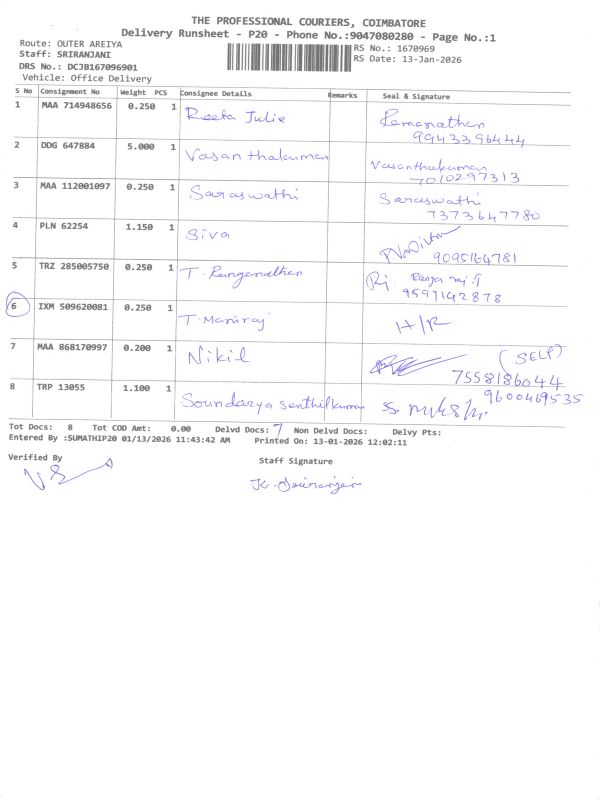 THE PROFESSIONAL COURIERS, COIMBATORE
Delivery Runsheet - P20 - Phone No.:9047080280 - Page No.:1
Route: OUTER AREIYA
Staff: SRIRANJANI
DRS No.: DCJB167096901
Vehicle: Office Delivery
RS No.: 1670969
RS Date: 13-Jan-2026
S No Consignment No Weight PCS Consignee Details Remarks Seal & Signature
1 MAA 714948656 0.250 1 Reeta Julie Ramanathan
9943396444
2 DDG 647884 5.000 1 Vasanthakumar Vasanthakumar
7010297313
3 MAA 112001097 0.250 1 Saraswathi Saraswathi
7373647780
4 PLN 62254 1.150 1 Siva
9095164781
5 TRZ 285005750 0.250 1 T. Ranganathan
9597142878
6 IXM 509620081 0.250 1 T. Maniraj H/R
7 MAA 868170997 0.200 1 Nikil (SELF)
7558186044
8 TRP 13055 1.100 1 Soundarya Senthilkumar
9600469535
Tot Docs: 8 Tot COD Amt: 0.00 Delvd Docs: 7 Non Delvd Docs: Delvy Pts:
Entered By :SUMATHIP20 01/13/2026 11:43:42 AM Printed On: 13-01-2026 12:02:11
Verified By
Staff Signature